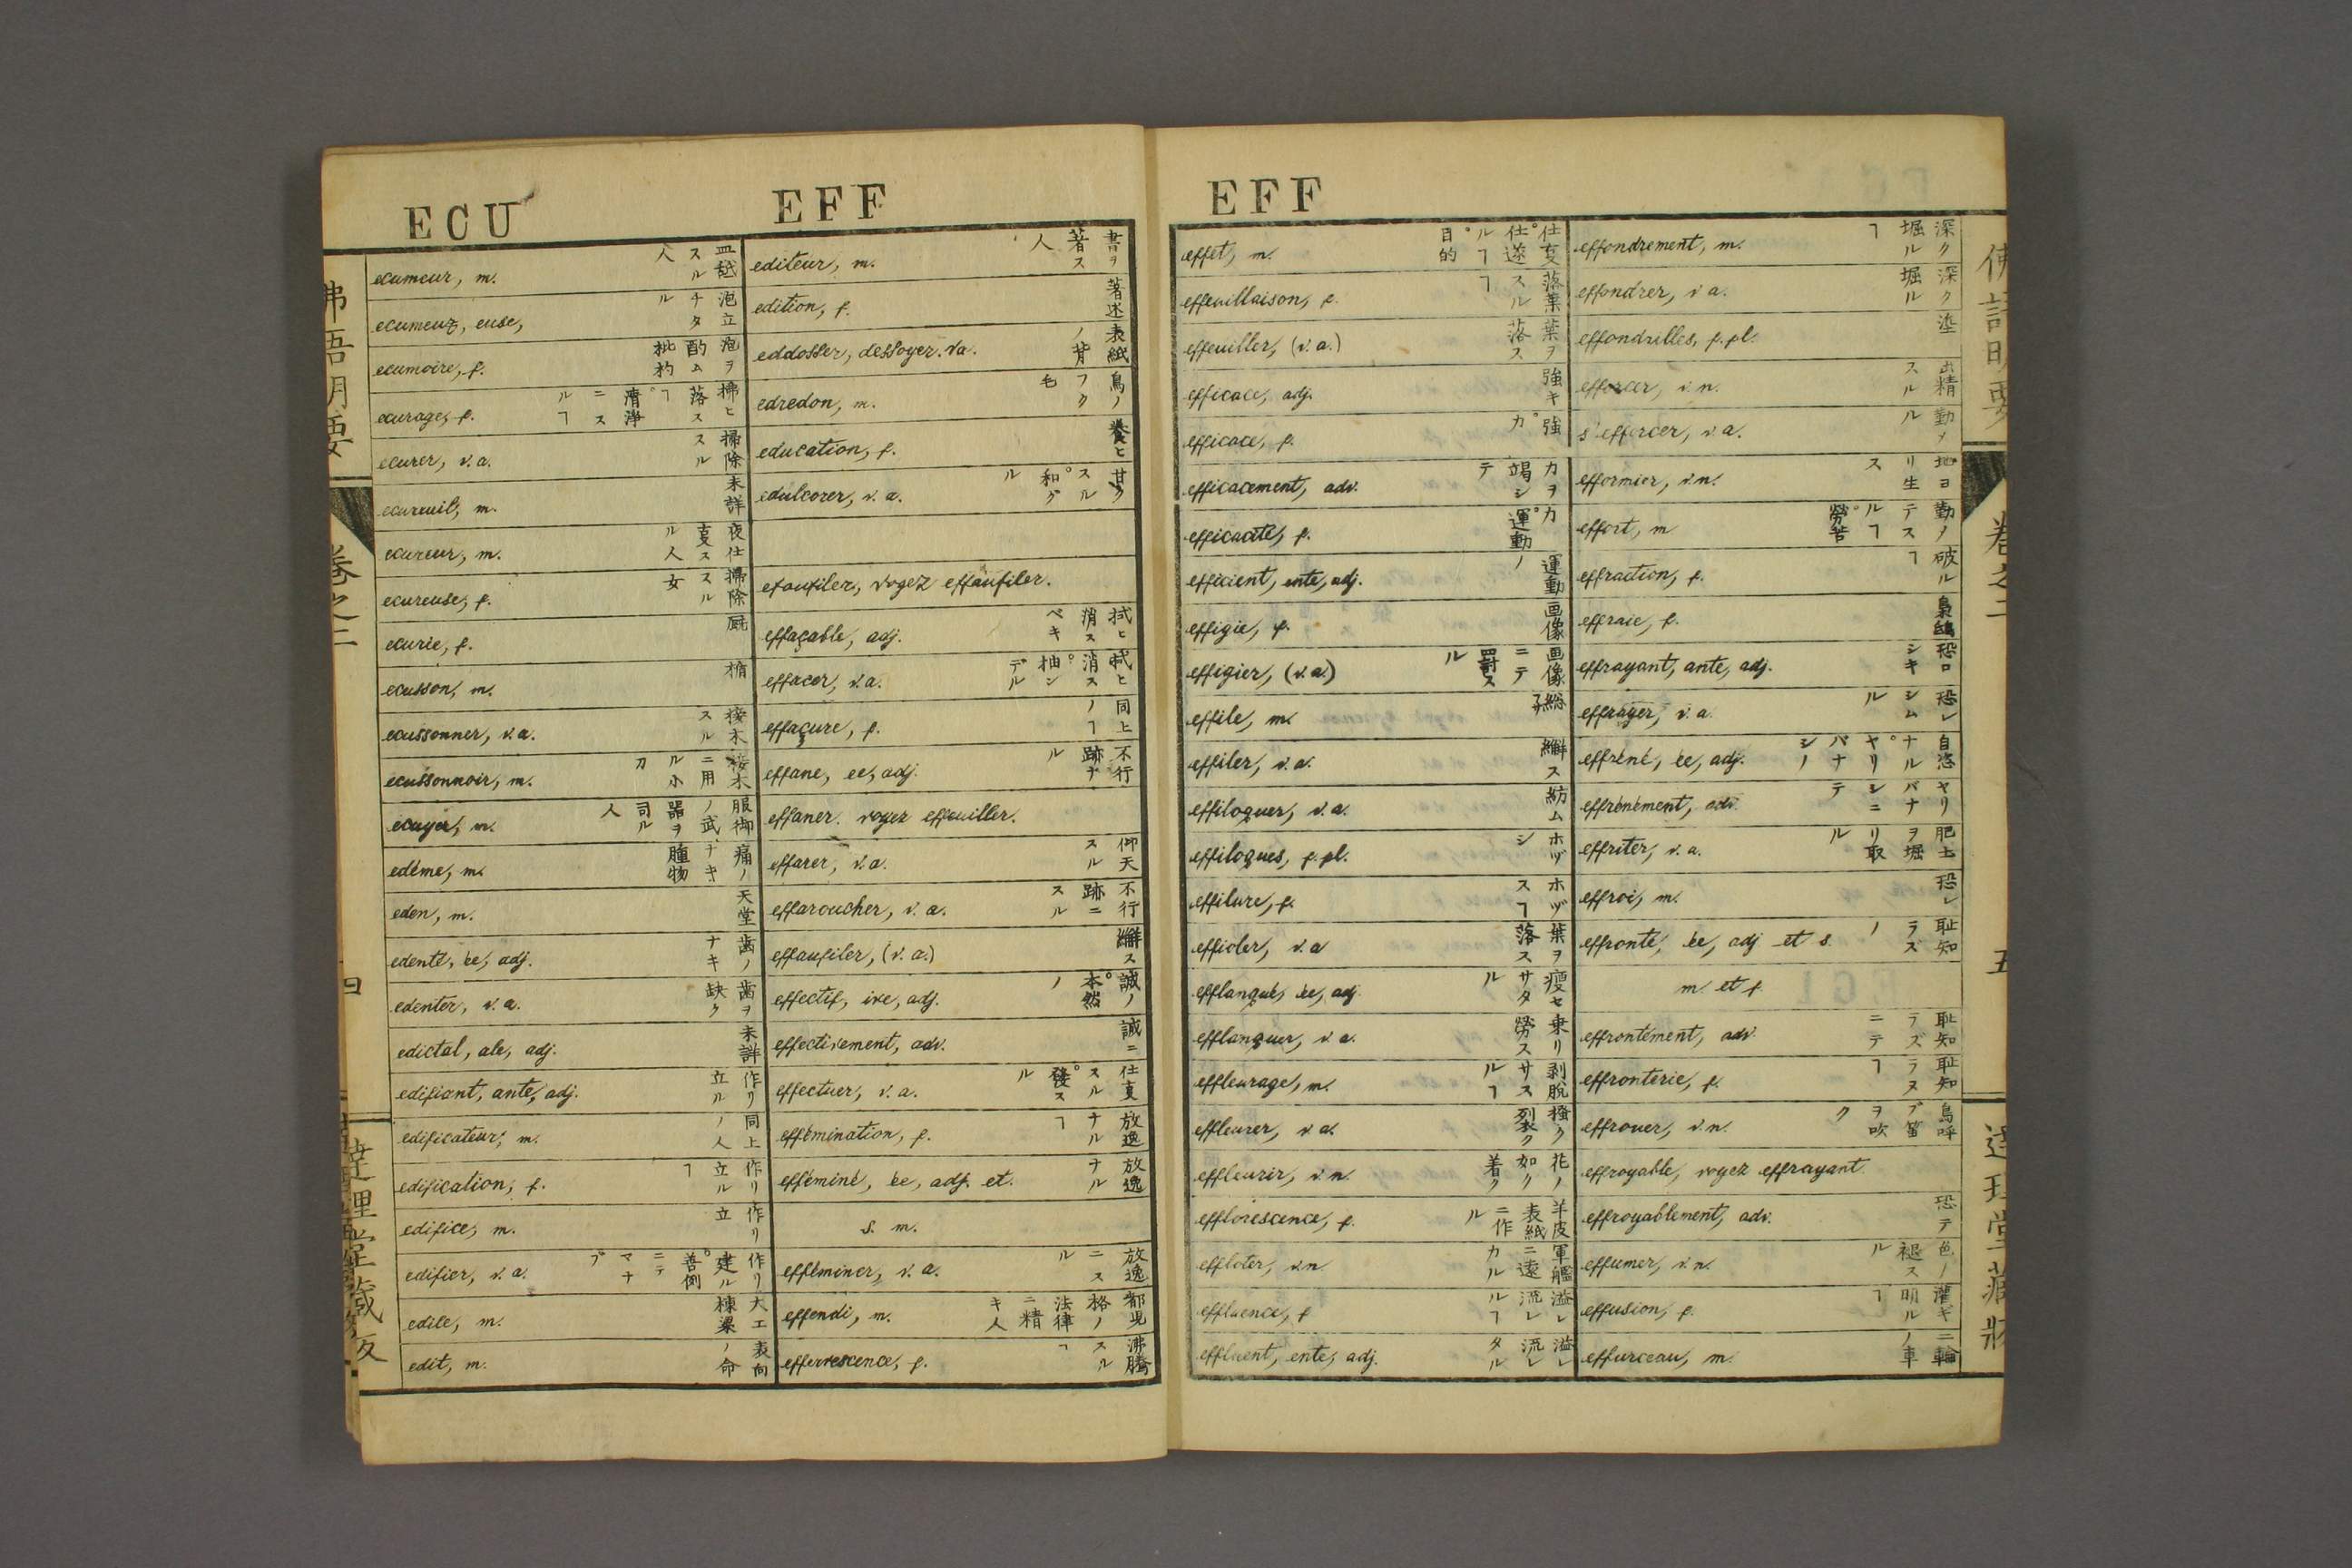 ECU
EFF
ecumeur, m. 皿越スル人
ecumeux, euse, 泡立チタル
ecumoire, f. 泡ヲ酌ム杓
ecurage, f. 掃ヒ落スヿ。清浄ニスルヿ
ecurer, v.a. 掃除スル
ecureuil, m. 未詳
ecureur, m. 夜仕叓スル人
ecureuse, f. 掃除スル女
ecurie, f. 厩
ecusson, m. 楯
ecussonner, v.a. 接木スル
ecussonnoir, m. 接木ニ用ル小刀
ecuyer, m. 服御ノ武器ヲ司ル人
edème, m. 痛ノナキ腫物
eden, m. 天堂
edenté, ée, adj. 歯ノナキ
edenter, v.a. 歯ヲ缺ク
edictal, ale, adj. 未詳
edifiant, ante, adj. 作リ立ル
edificateur, m. 同上ノ人
edification, f. 作リ立ルヿ
edifice, m. 作リ立
edifier, v.a. 作リ建ル。善例ニテマナブ
edile, m. 大工棟梁
edit, m. 表向ノ命
editeur, m. 書ヲ著ス人
edition, f. 著述
eddosser, dessoyer. va. 表紙ノ背
edredon, m. 鳥ノフク毛
education, f. 養ヒ
edulcorer, v.a. 甘クスル。和グル
efaufiler, voyez effaufiler.
effaçable, adj. 拭ヒ消スベキ
effacer, v.a. 拭ヒ消ス。抽ンデル
effaçure, f. 同上ノヿ
effane, ee, adj. 不行跡ナル
effaner. voyez effeuiller.
effarer, v.a. 仰天スル
effaroucher, v.a. 不行跡ニスル
effaufiler, (v.a.) 繲ス
effectif, ive, adj. 誠ノ。本然ノ
effectivement, adv. 誠ニ
effectuer, v.a. 仕叓スル。發スル
effémination, f. 放逸ナルヿ
efféminé, ée, adj. et. 放逸ナル
s. m.
efféminer, v.a. 放逸ニスル
effendi, m. 都児格ノ法律ニ精キ人
effervescence, f. 沸騰スルヿ
EFF
effet, m. 仕叓。仕遂ルヿ。目的
effeuillaison, f. 落葉スルヿ
effeuiller, (v.a.) 葉ヲ落ス
efficace, adj. 強キ
efficace, f. 強。力
efficacement, adv. カヲ竭シテ
efficacité, f. カ。運動
efficient, ente, adj. 運動ノ
effigie, f. 画像
effigier, (v.a.) 画像ニテ罸スル
effile, m. 総子
effiler, v.a. 繲ス
effiloquer, v.a. 紡ム
effiloques, f. pl. ホヅシ
effilure, f. ホヅスヿ
effioler, v.a 葉ヲ落ス
efflanqué, ée, adj. 瘦セサタル
efflanquer, v.a. 乗リ勞ス
effleurage, m. 剥脱サスルヿ
effleurer, v.a. 掻ク裂ク
effleurir, v.n. 花ノ如ク着ク
efflorescence, f. 羊皮表紙ニ作ル
effloter, v.n. 軍艦ニ遠カル
effluence, f 溢レ流レルヿ
effluent, ente, adj. 溢レ流レタル
effondrement, m. 深ク堀ルヿ
effondrer, v.a. 深ク堀ル
effondrilles, f. pl.
efforcer, v.n. 出精スル
s'efforcer, v.a.
efformier, v.n. 地ヨリ生ス
effort, m 勤メテスル。勞苦
effraction, f. 破ルヿ
effraie, f. 梟鴟
effrayant, ante, adj. 恐ロシキ
effrayer, v.a. 恐レシムル
effréné, ée, adj. 自恣ナル。ヤリバナシノ
effrénément, adv. ヤリバナシニテ
effriter, v.a. 肥土ヲ堀リ取ル
effroi, m. 恐レ
effronté, ée, adj et s. 耻知ラズノ
m. et f.
effrontément, adv. 耻知ラズニテ
effronterie, f. 耻知ラヌヿ
effrouer, v.n. 鳥呼ブ笛ヲ吹ク
effroyable, voyez effrayant
effroyablement, adv. 恐テ
effumer, v.n. 色ノ褪スル
effusion, f. 灌ギ明ルヿ
effurceau, m. 二輪ノ車
佛語明要 卷之二 五 達理堂藏版